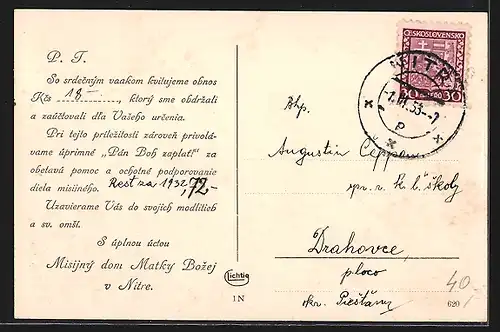 P. T.
So srdečným vďakom kvitujeme obnos
Kčs 18- , ktorý sme obdržali
a zaúčtovali dľa Vašeho určenia.
Pri tejto príležitosti zároveň privolá-
vame úprimné „Pán Boh zaplať" za
obetavú pomoc a ochotné podporovanie
diela misijného. Rest za 1932, 72-
Uzavierame Vás do svojich modlitieb
a sv. omší.
S úplnou úctou
Misijný dom Matky Božej
v Nitre.
lichtig
1N
ČESKOSLOVENSKO
30 30
NITR
-1.VI.33.-7
P
Bhp.
Augustin
školy
Drahovce,
okr. Piešťany
40,-
620